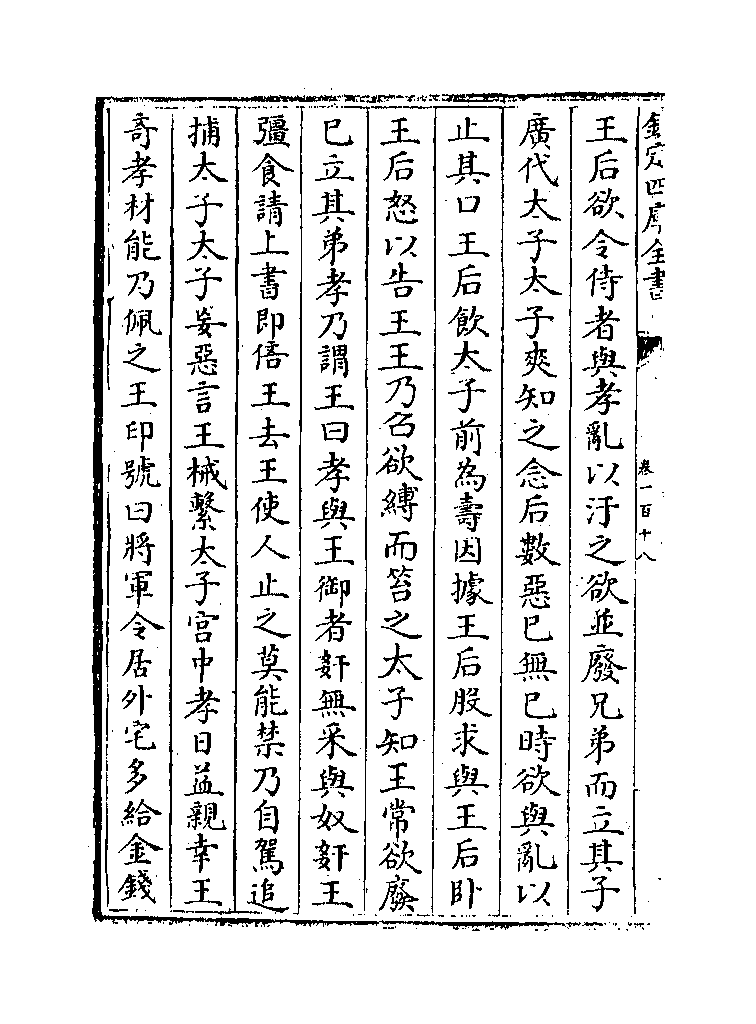 欽定四庫全書
卷一百十八
王后欲令侍者與孝亂以汙之欲並廢兄弟而立其子
廣代太子太子爽知之念后數惡已無已時欲與亂以
止其口王后飲太子前為壽因據王后股求與王后卧
王后怒以告王王乃召欲縛而笞之太子知王常欲廢
已立其弟孝乃謂王曰孝與王御者姧無采與奴姧王
彊食請上書即偣王去王使人止之莫能禁乃自駕追
捕太子太子妄惡言王械繫太子宮中孝日益親幸王
奇孝材能乃佩之王印號曰將軍令居外宅多給金錢